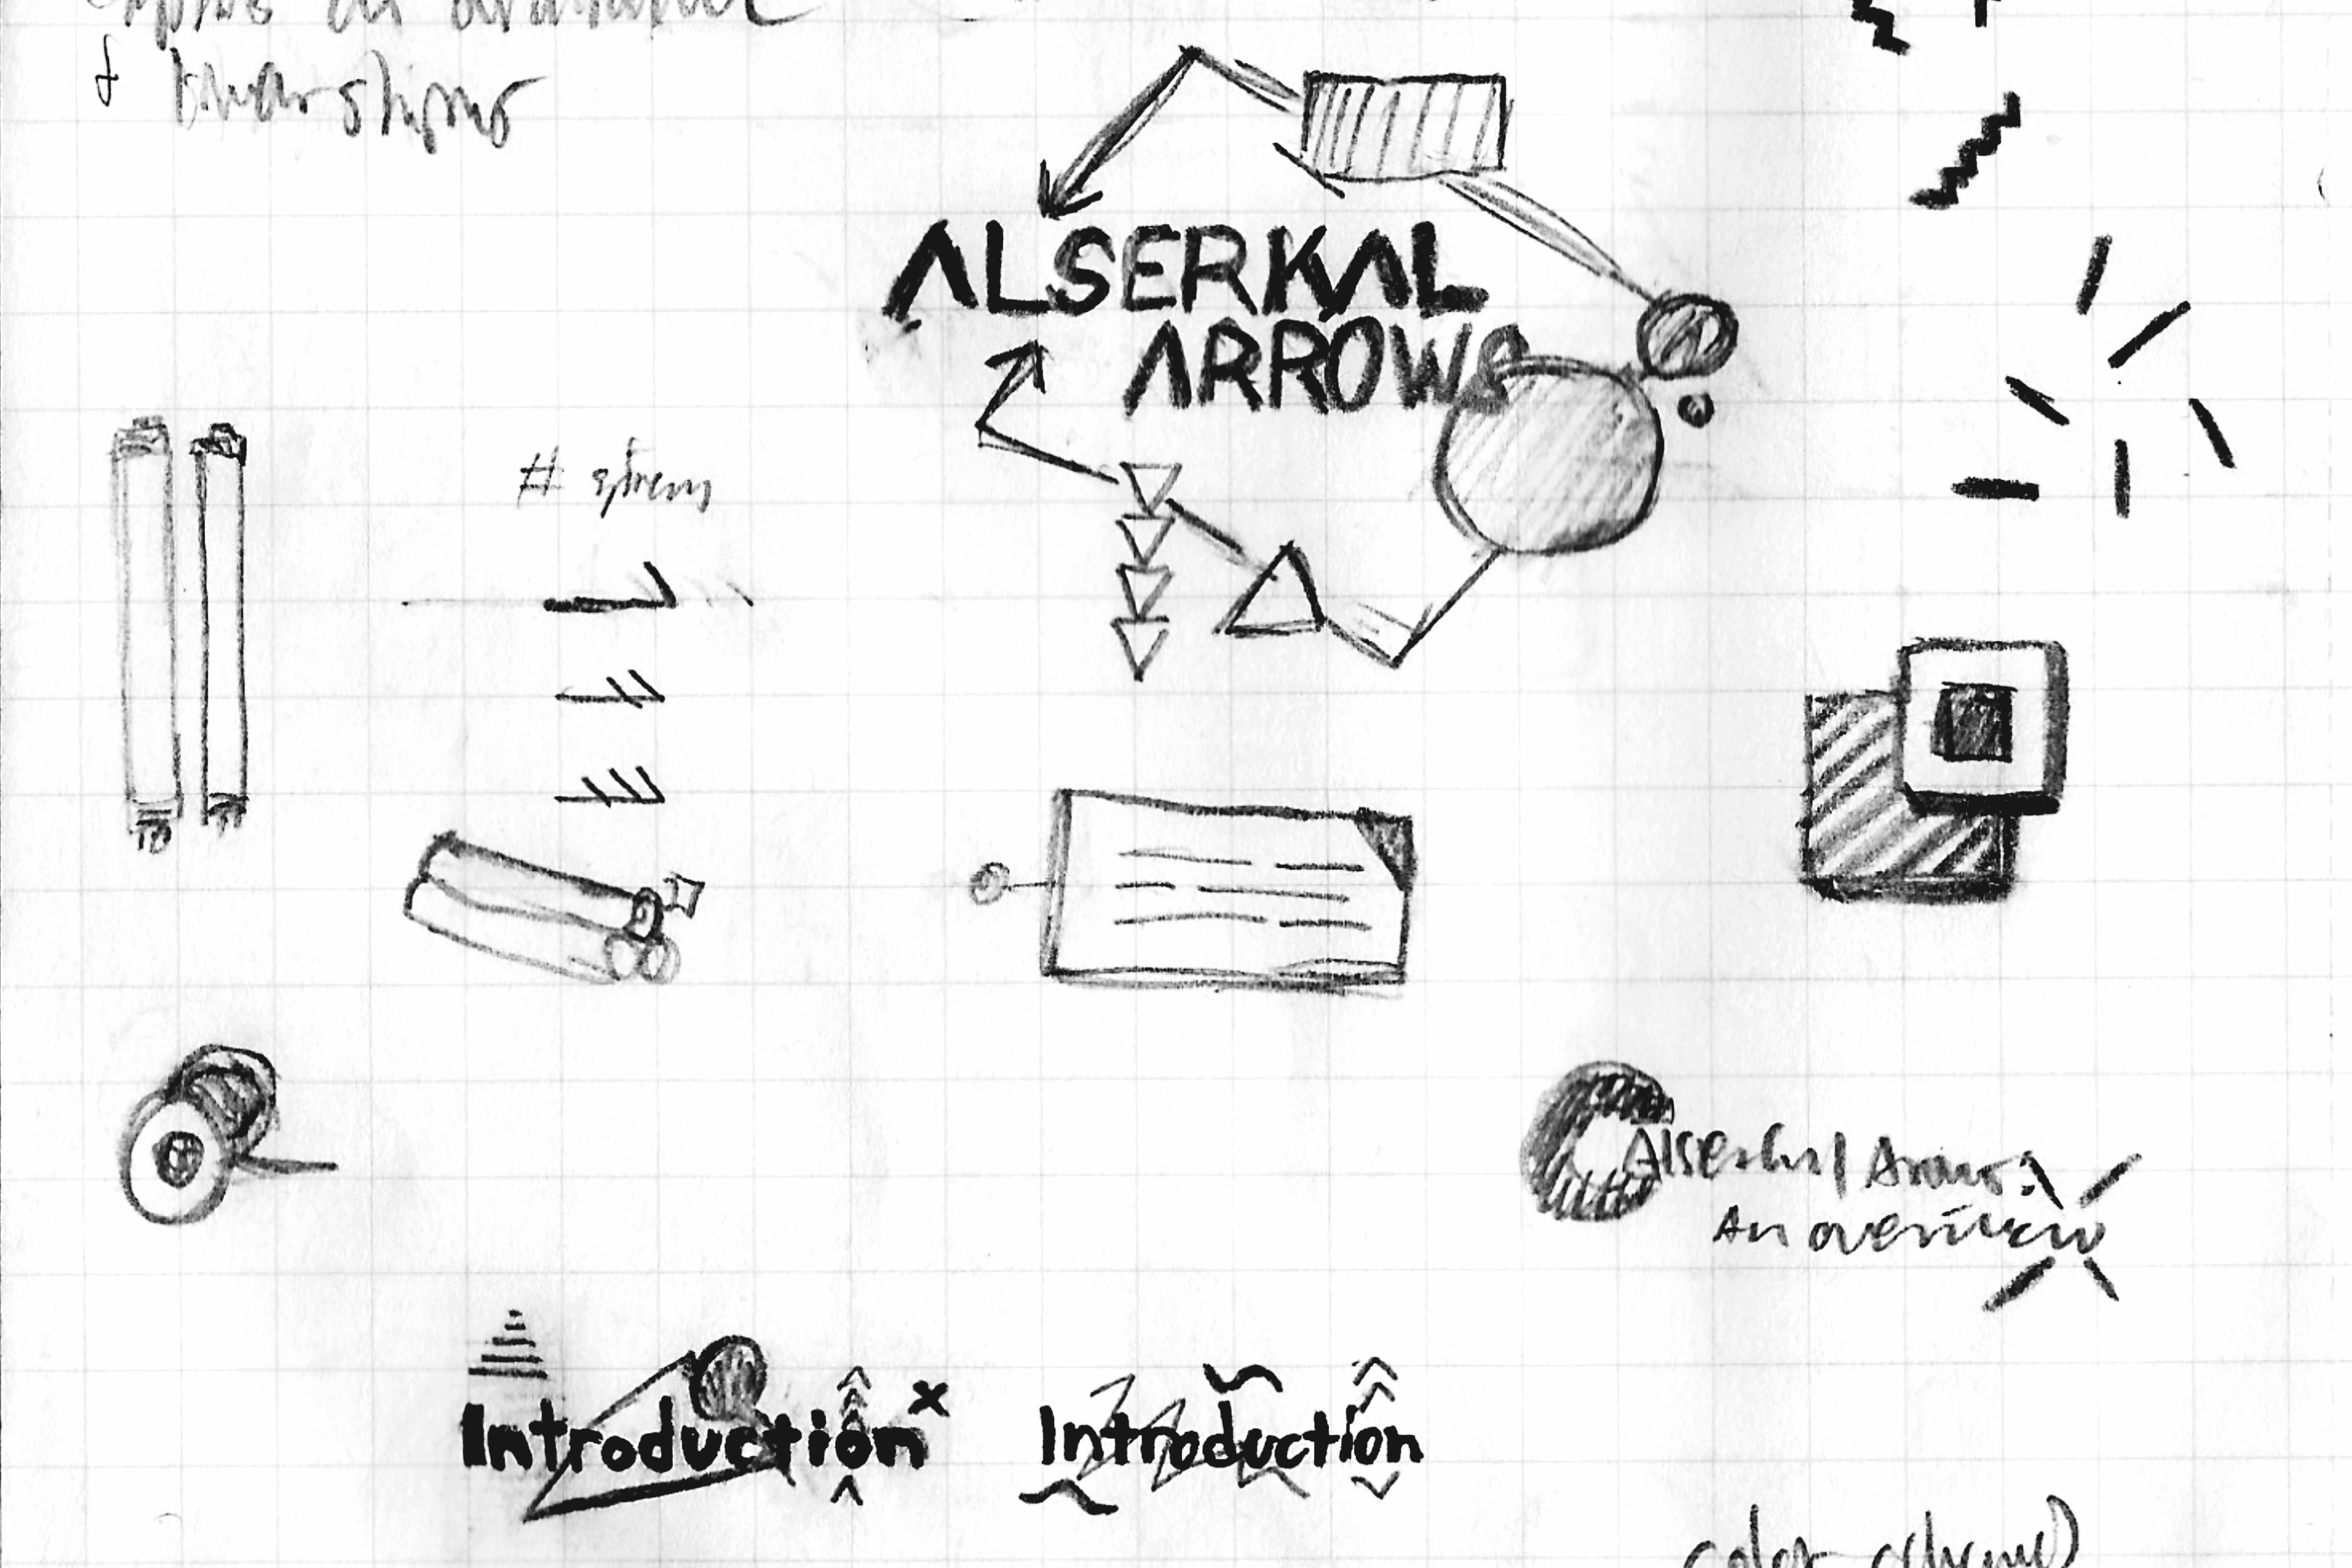 &
ALSERKAL
ARROWS
#
Alserkal Arrows:
An overview
Introduction
Introduction
color scheme)